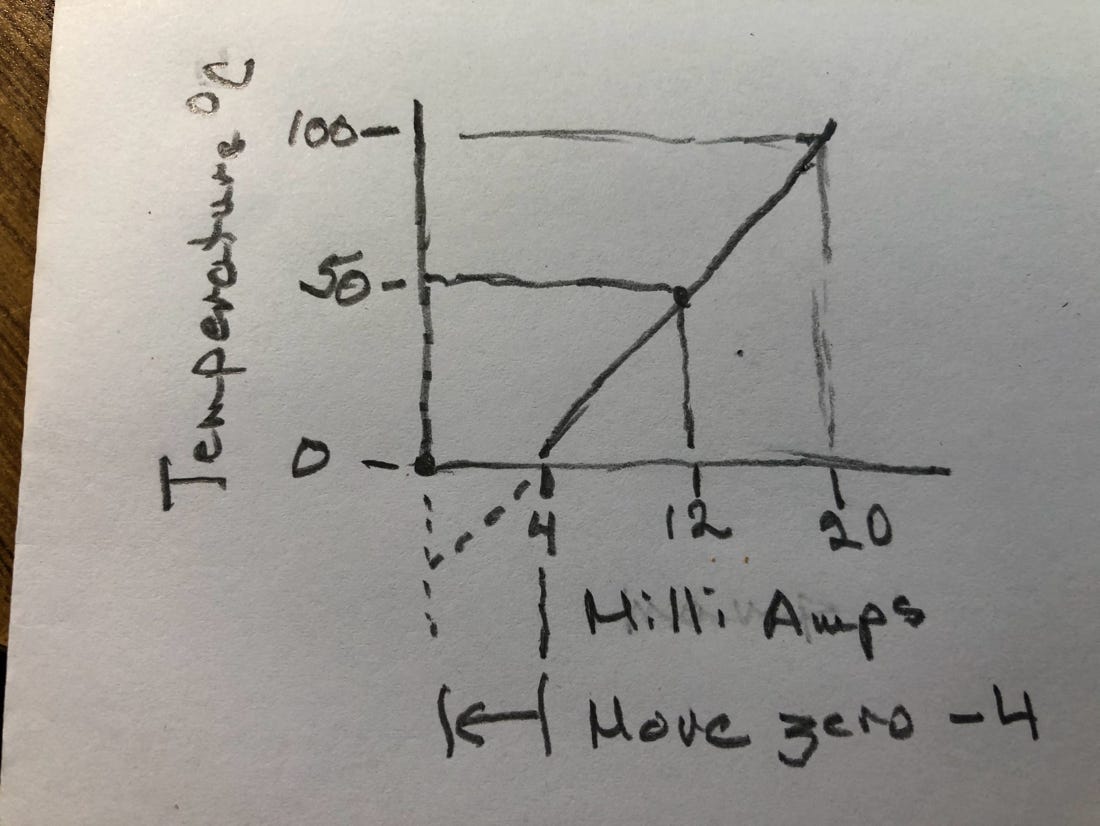 Temperature °C
100
50
0
4 12 20
Milli Amps
Move zero -4